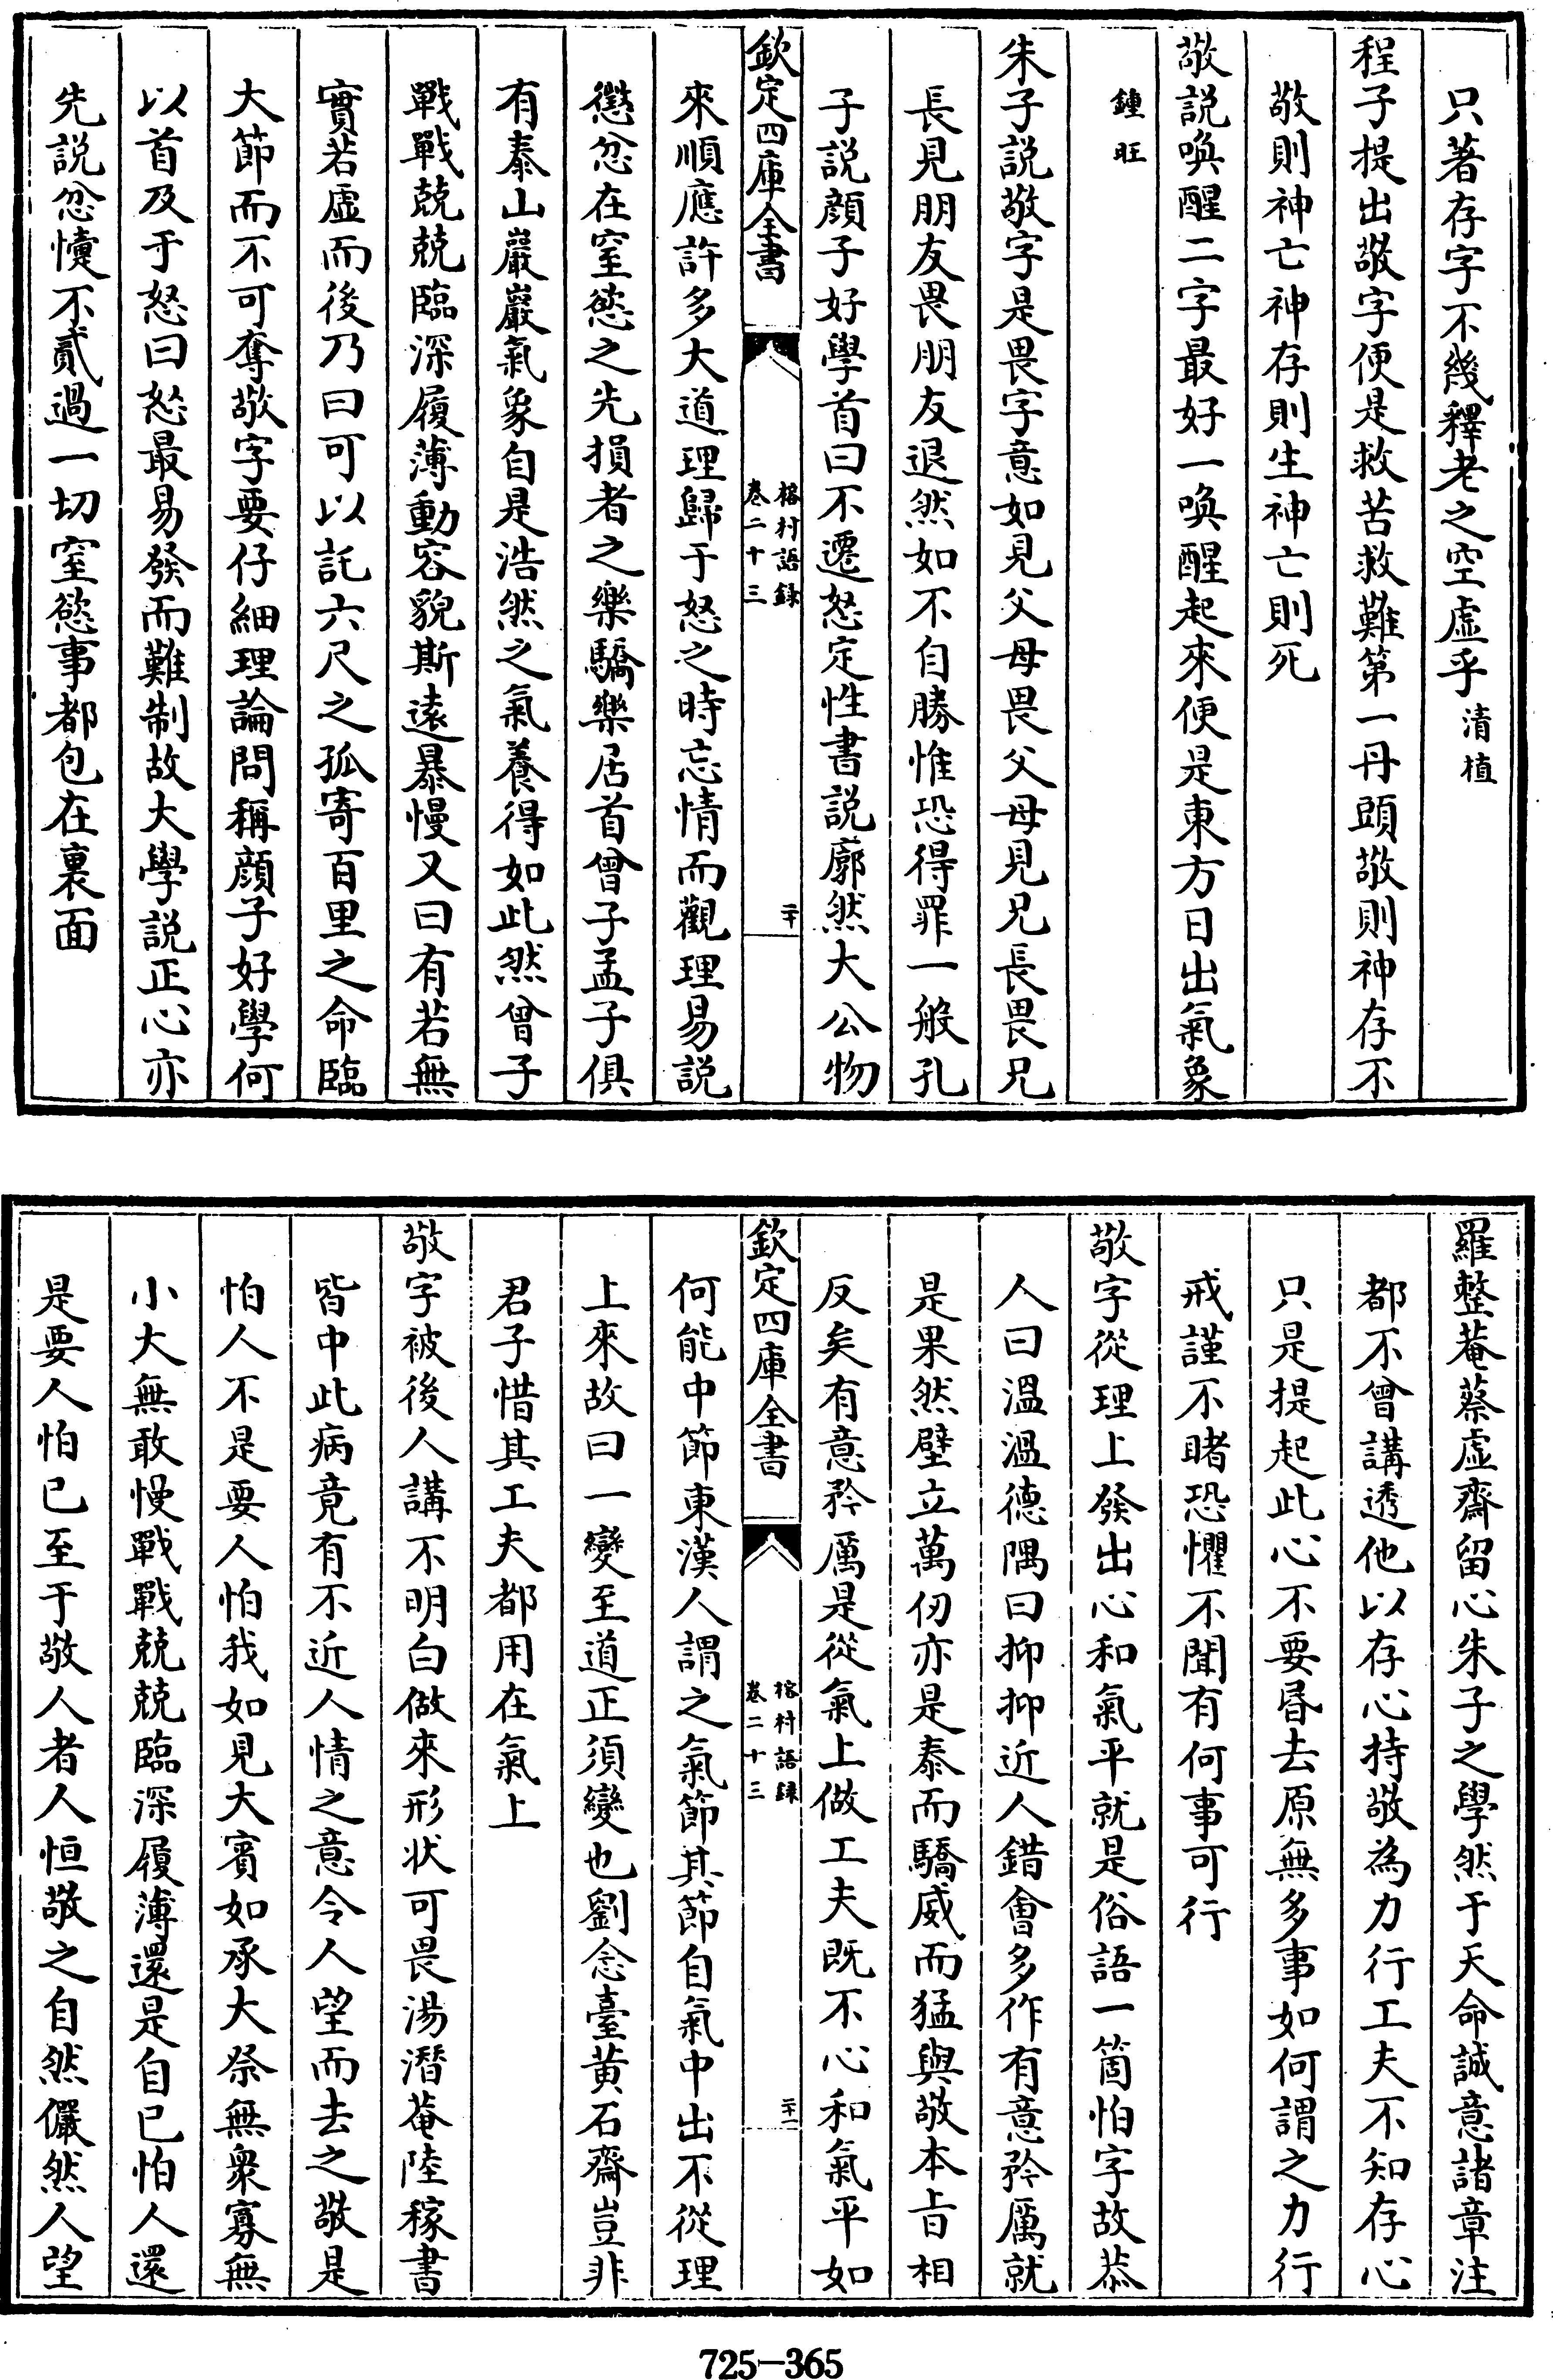 只著存字不幾釋老之空虛乎清植
程子提出敬字便是救苦救難第一丹頭敬則神存不
敬則神亡神存則生神亡則死
敬説喚醒二字最好一喚醒起來便是東方日出氣象
鍾旺
朱子説敬字是畏字意如見父母畏父母見兄長畏兄
長見朋友畏朋友退然如不自勝惟恐得罪一般孔
子説顔子好學首曰不遷怒定性書説廓然大公物
欽定四庫全書
榕村語録
卷二十三
二十
來順應許多大道理歸于怒之時忘情而觀理易説
懲忿在窒慾之先損者之樂驕樂居首曾子孟子俱
有泰山巖巖氣象自是浩然之氣養得如此然曾子
戰戰兢兢臨深履薄動容貌斯逺暴慢又曰有若無
實若虛而後乃曰可以託六尺之孤寄百里之命臨
大節而不可奪敬字要仔細理論問稱顔子好學何
以首及于怒曰怒最易發而難制故大學説正心亦
先説忿懥不貳過一切窒慾事都包在裏面
羅整菴蔡虛齋留心朱子之學然于天命誠意諸章注
都不曾講透他以存心持敬為力行工夫不知存心
只是提起此心不要昏去原無多事如何謂之力行
戒謹不睹恐懼不聞有何事可行
敬字從理上發出心和氣平就是俗語一箇怕字故恭
人曰溫溫德隅曰抑抑近人錯會多作有意矜厲就
是果然壁立萬仞亦是泰而驕威而猛與敬本㫖相
反矣有意矜厲是從氣上做工夫既不心和氣平如
欽定四庫全書
榕村語録
卷二十三
二十一
何能中節東漢人謂之氣節其節自氣中出不從理
上來故曰一變至道正須變也劉念臺黄石齋豈非
君子惜其工夫都用在氣上
敬字被後人講不明白做來形狀可畏湯潛菴陸稼書
皆中此病竟有不近人情之意令人望而去之敬是
怕人不是要人怕我如見大賓如承大祭無衆寡無
小大無敢慢戰戰兢兢臨深履薄還是自已怕人還
是要人怕已至于敬人者人恒敬之自然儼然人望
725-365